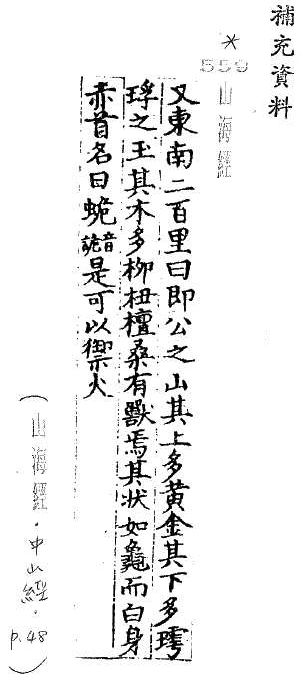 補充資料
*
559
山海經
又東南二百里曰即公之山其上多黃金其下多㻬
琈之玉其木多柳杻檀桑有獸焉其状如龜而白身
赤首名曰蛫音詭是可以禦火
(山海經・中山經・p.48)